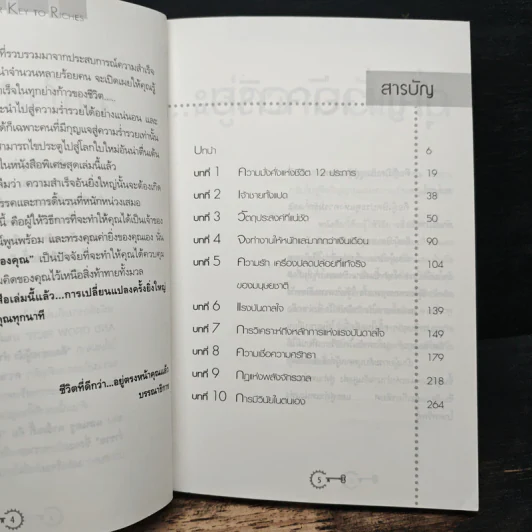 Key to Riches
ที่รวบรวมมาจากประสบการณ์ความสำเร็จ
นำจำนวนหลายร้อยคน จะเปิดเผยให้คุณรู้
เร็จในทุกย่างก้าวของชีวิต
ะนำไปสู่ความร่ำรวยได้อย่างแน่นอน และ
ได้ก็เฉพาะคนที่มีกุญแจสู่ความร่ำรวยเท่านั้น
ามารถไขประตูไปสู่โลกใบใหม่อันน่าตื่นเต้น
ในหนังสือพิเศษสุดเล่มนี้แล้ว
ความสำเร็จอันยิ่งใหญ่นั้นจะต้องเกิด
รรคและการดิ้นรนที่หนักหน่วงเสมอ
นี้ คือผู้ให้วิธีการที่จะทำให้คุณได้เป็นเจ้าของ
และทรงคุณค่ายิ่งของคุณเอง นั่น
องคุณ" เป็นปัจจัยที่จะทำให้คุณได้ควบคุม
มคิดของคุณไว้เหนือสิ่งท้าทายทั้งมวล
สือเล่มนี้แล้ว...การเปลี่ยนแปลงครั้งยิ่งใหญ่
คุณทุกนาที
ชีวิตที่ดีกว่า...อยู่ตรงหน้าคุณแล้ว
บรรณาธิการ
4
สารบัญ
บทนำ 6
บทที่ 1 ความมั่งคั่งแห่งชีวิต 12 ประการ 19
บทที่ 2 เจ้าชายทั้งแปด 38
บทที่ 3 วัตถุประสงค์ที่แน่ชัด 50
บทที่ 4 จงทำงานให้หนักและมากกว่าเงินเดือน 90
บทที่ 5 ความรัก เครื่องปลดปล่อยที่แท้จริง 104
ของมนุษยชาติ
บทที่ 6 แรงบันดาลใจ 139
บทที่ 7 การวิเคราะห์ถึงหลักการแห่งแรงบันดาลใจ 149
บทที่ 8 ความเชื่อความศรัทธา 179
บทที่ 9 กฎแห่งพลังจักรวาล 218
บทที่ 10 การมีวินัยในตนเอง 264
5